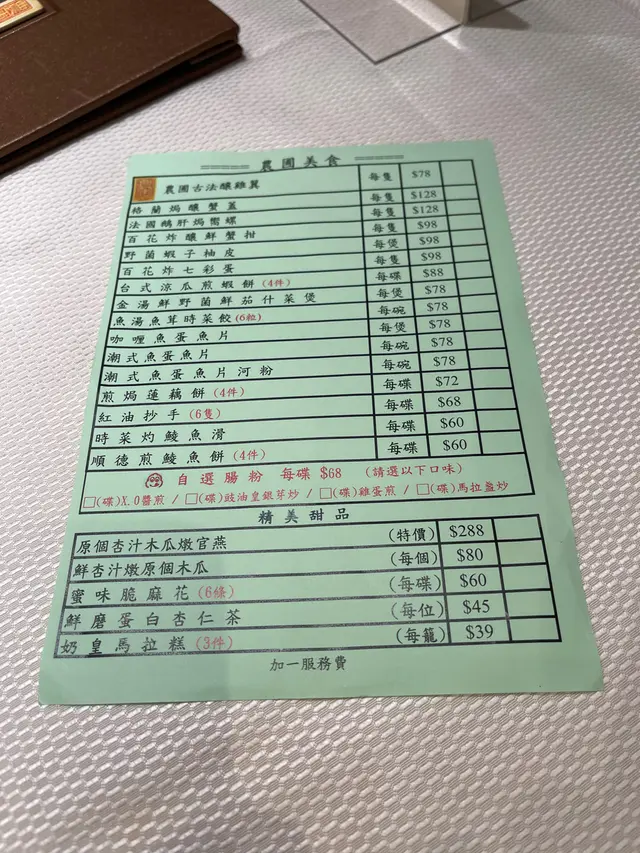 農圃美食
農圃古法釀雞翼 每隻 $78
格蘭焗釀蟹蓋 每隻 $128
法國鵝肝焗嚮螺 每隻 $128
百花炸釀鮮蟹拑 每隻 $98
野菌蝦子柚皮 每煲 $98
百花炸七彩蛋 每隻 $98
台式涼瓜煎蝦餅(4件) 每碟 $88
金湯鮮野菌鮮茄什菜煲 每煲 $78
魚湯魚茸時菜餃(6粒) 每碗 $78
咖喱魚蛋魚片 每煲 $78
潮式魚蛋魚片 每碗 $78
潮式魚蛋魚片河粉 每碗 $78
煎焗蓮藕餅(4件) 每碟 $72
紅油抄手(6隻) 每碟 $68
時菜灼鯪魚滑 每碟 $60
順德煎鯪魚餅(4件) 每碟 $60
自選腸粉 每碟 $68 (請選以下口味)
□(碟)X.O醬煎 / □(碟)豉油皇銀芽炒 / □(碟)雞蛋煎 / □(碟)馬拉盞炒
精美甜品
原個杏汁木瓜燉官燕 (特價) $288
鮮杏汁燉原個木瓜 (每個) $80
蜜味脆麻花(6條) (每碟) $60
鮮磨蛋白杏仁茶 (每位) $45
奶皇馬拉糕(3件) (每籠) $39
加一服務費